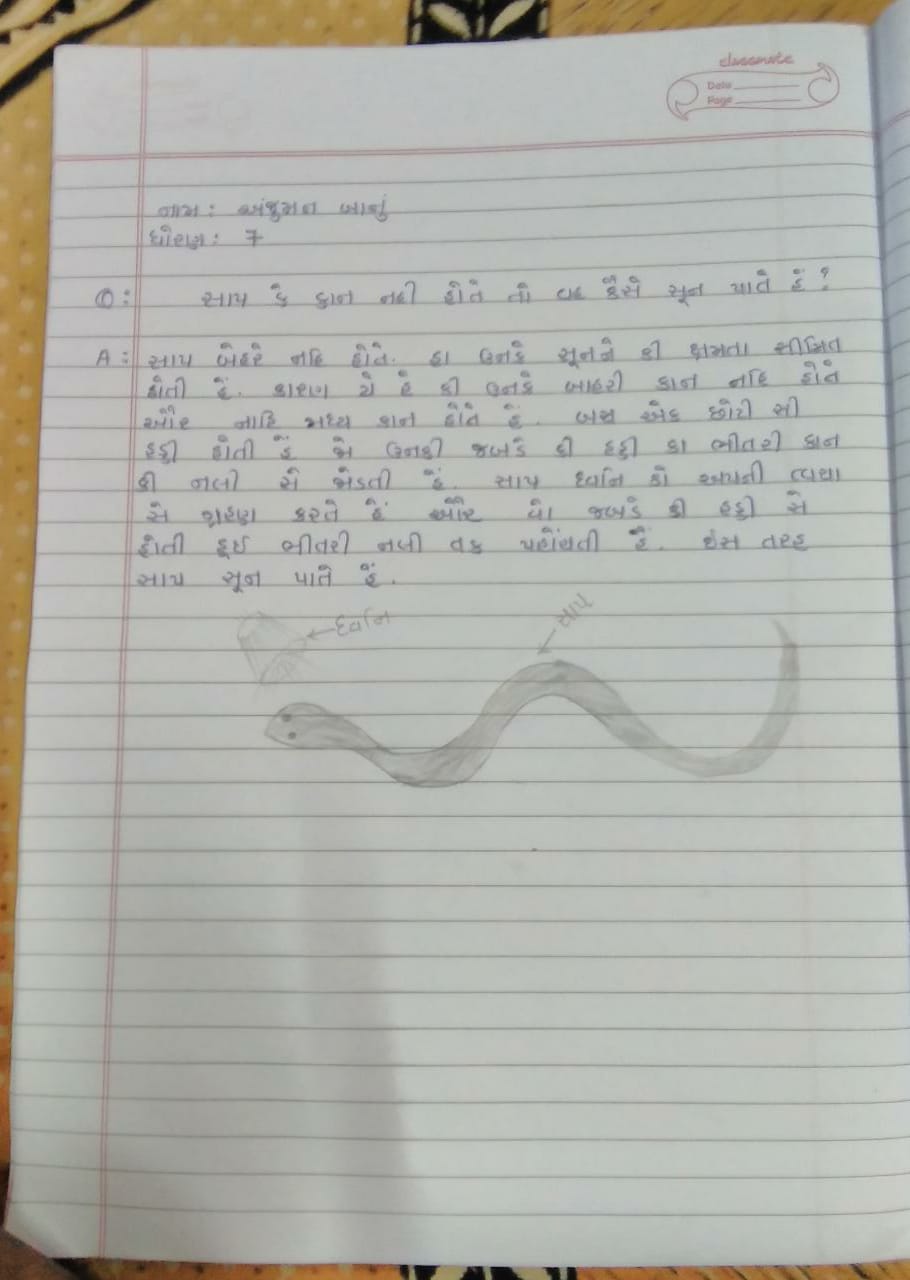 classmate
Date
Page
નામ : અંજુમન બાનું
ધોરણ : 7
Q : સાપ કે કાન નહી હોતે તો વહ કૈસે સૂન પાતે હૈં ?
A : સાપ બેહરે નહિ હોતે. હા ઉનકે સૂનને કી ક્ષમતા સીમિત
હોતી હૈં. કારણ યે હૈ કી ઉનકે બાહરી કાન નહિ હોતે
ઔર નાહિ મધ્ય કાન હોતે હૈં. બસ એક છોટી સી
હડ્ડી હોતી હૈ જો ઉનકી જબડે કી હડ્ડી કા ભીતરી કાન
કી નલી સે જોડતી હૈં. સાપ ધ્વનિ કો અપની ત્વચા
સે ગ્રહણ કરતે હૈં ઔર વો જબડે કી હડ્ડી સે
હોતી હૂઈ ભીતરી નલી તક પહોંચતી હૈં. ઇસ તરહ
સાપ સૂન પાતે હૈં.
ધ્વનિ
સાપ